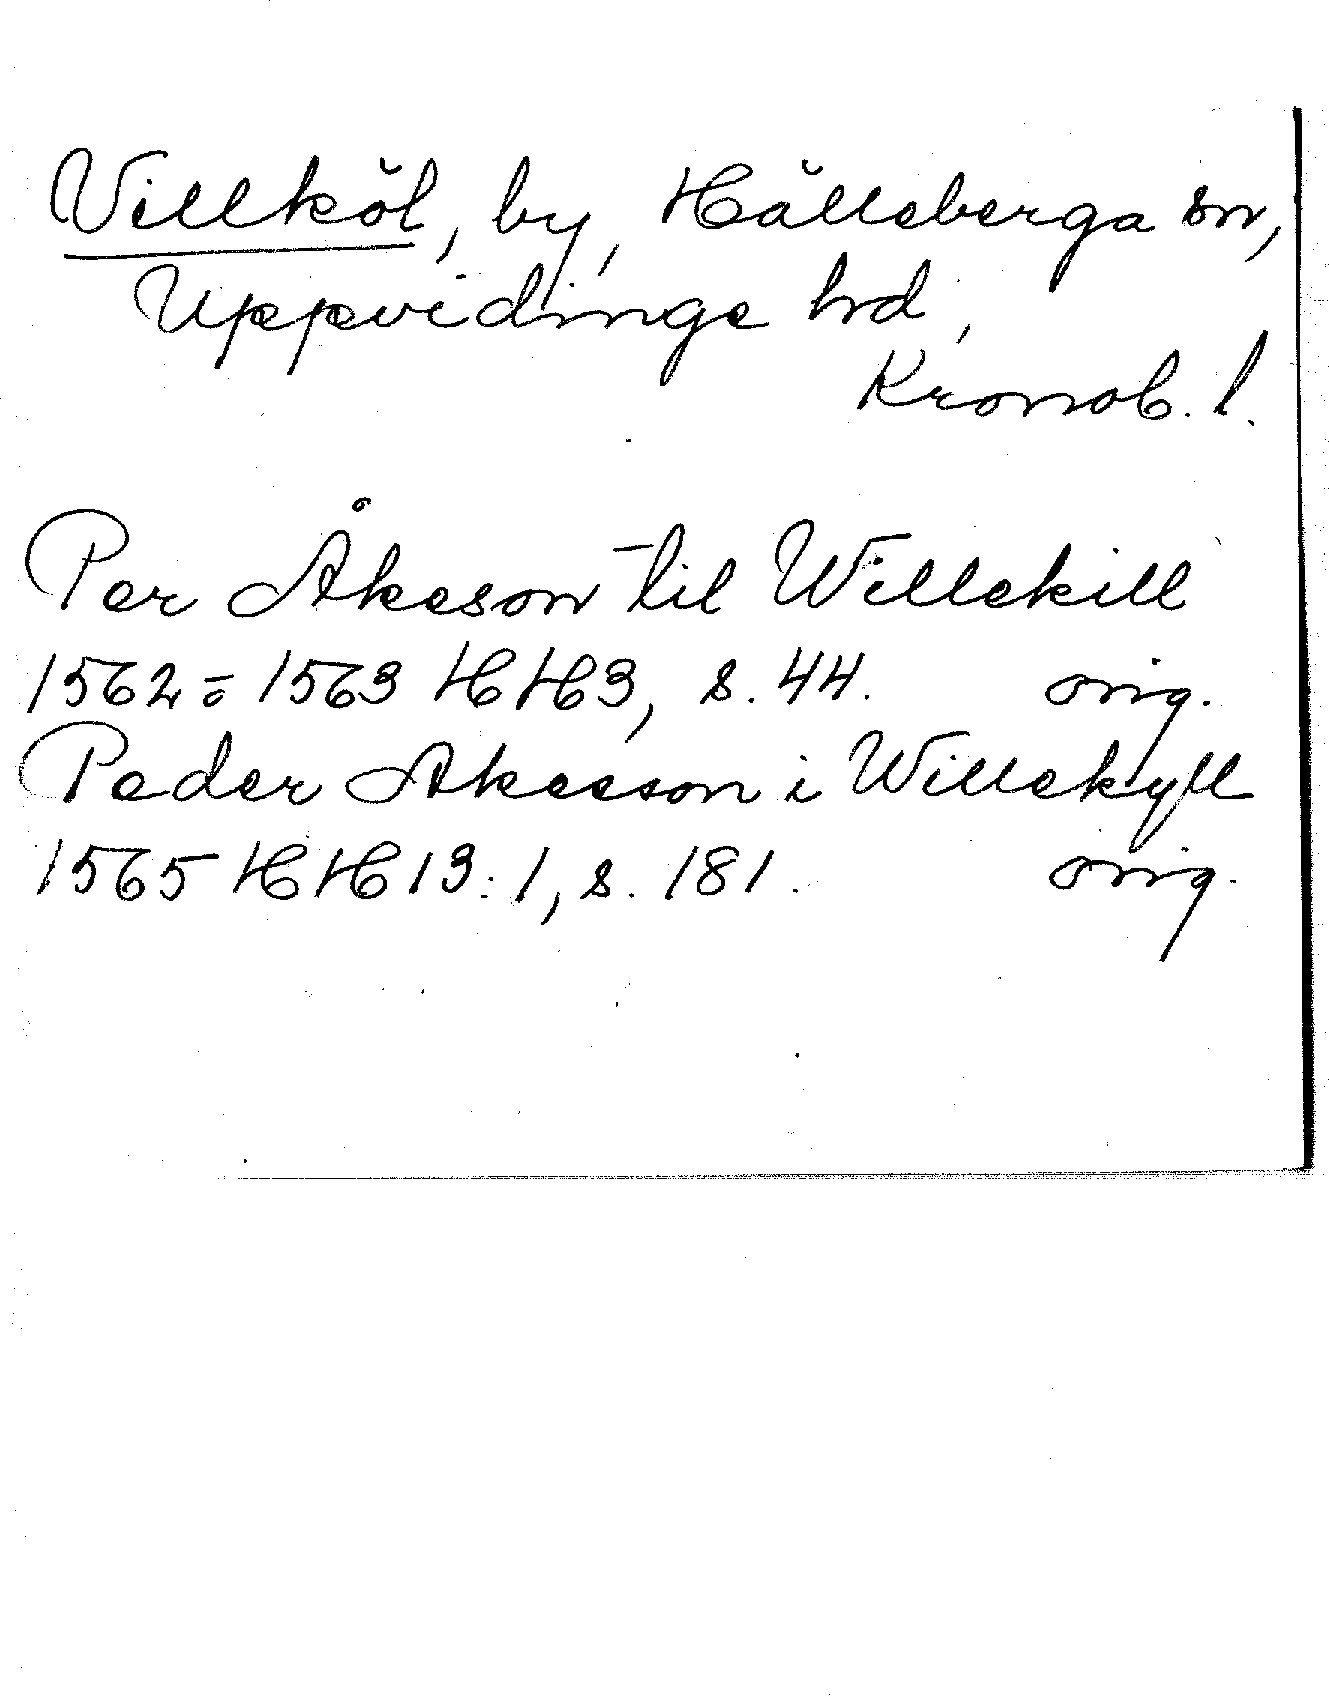 Villköl, by, Hälleberga sn,
Uppvidinge hd,
Kronob. l.
Per Åkeson til Willekill
1562-1563 HH3, s. 44. orig.
Peder Akesson i Willekyll
1565 HH13:1, s. 181. orig.